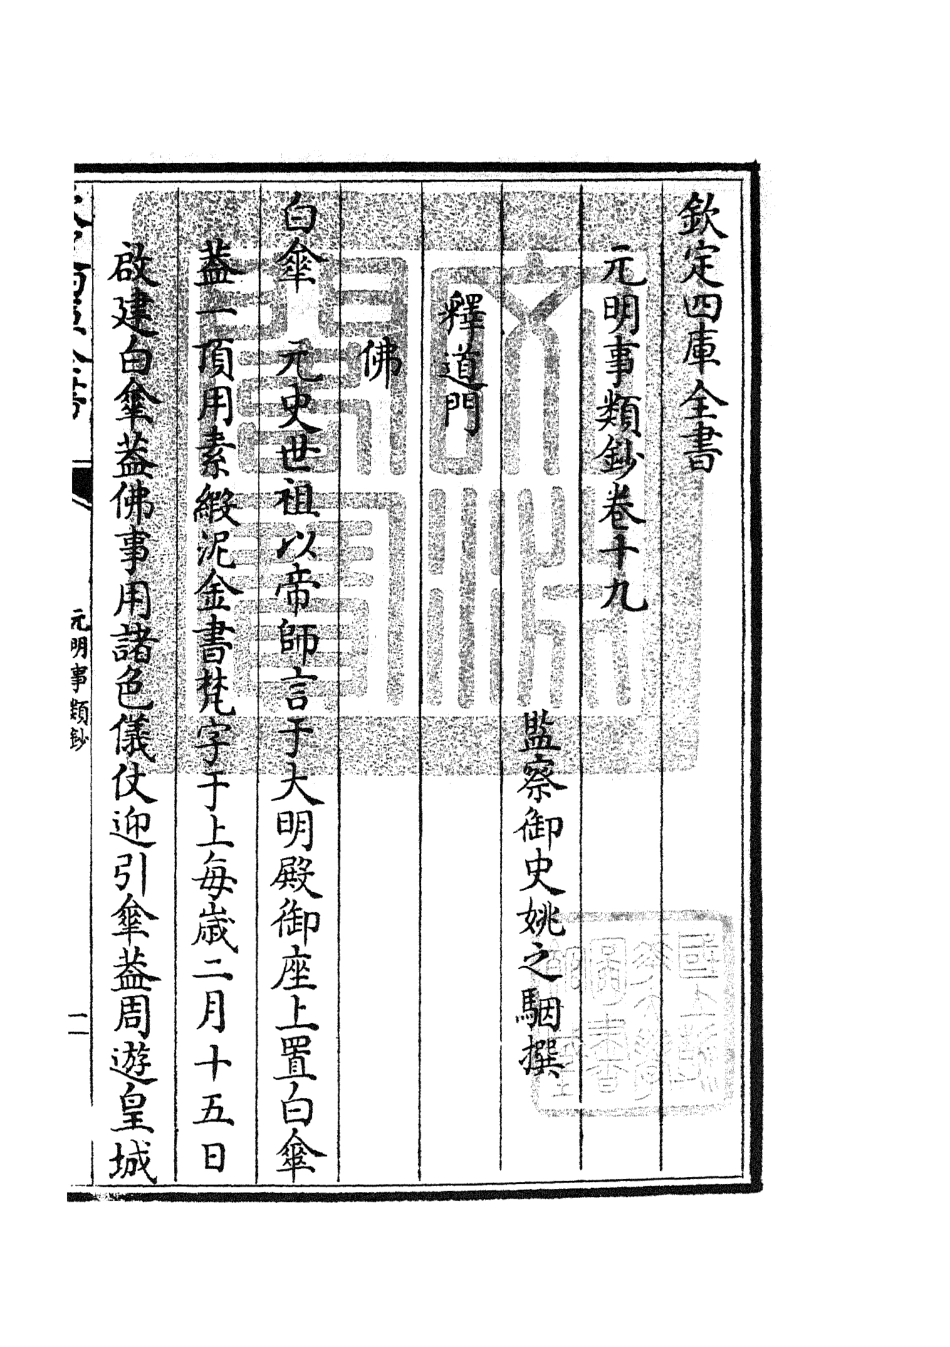 欽定四庫全書
元明事類鈔卷十九
監察御史姚之駰撰
釋道門
佛
白傘　元史世祖以帝師言于大明殿御座上置白傘
葢一頂用素緞泥金書梵字于上每歲二月十五日
啟建白傘葢佛事用諸色儀仗迎引傘葢周遊皇城
元明事類鈔
一